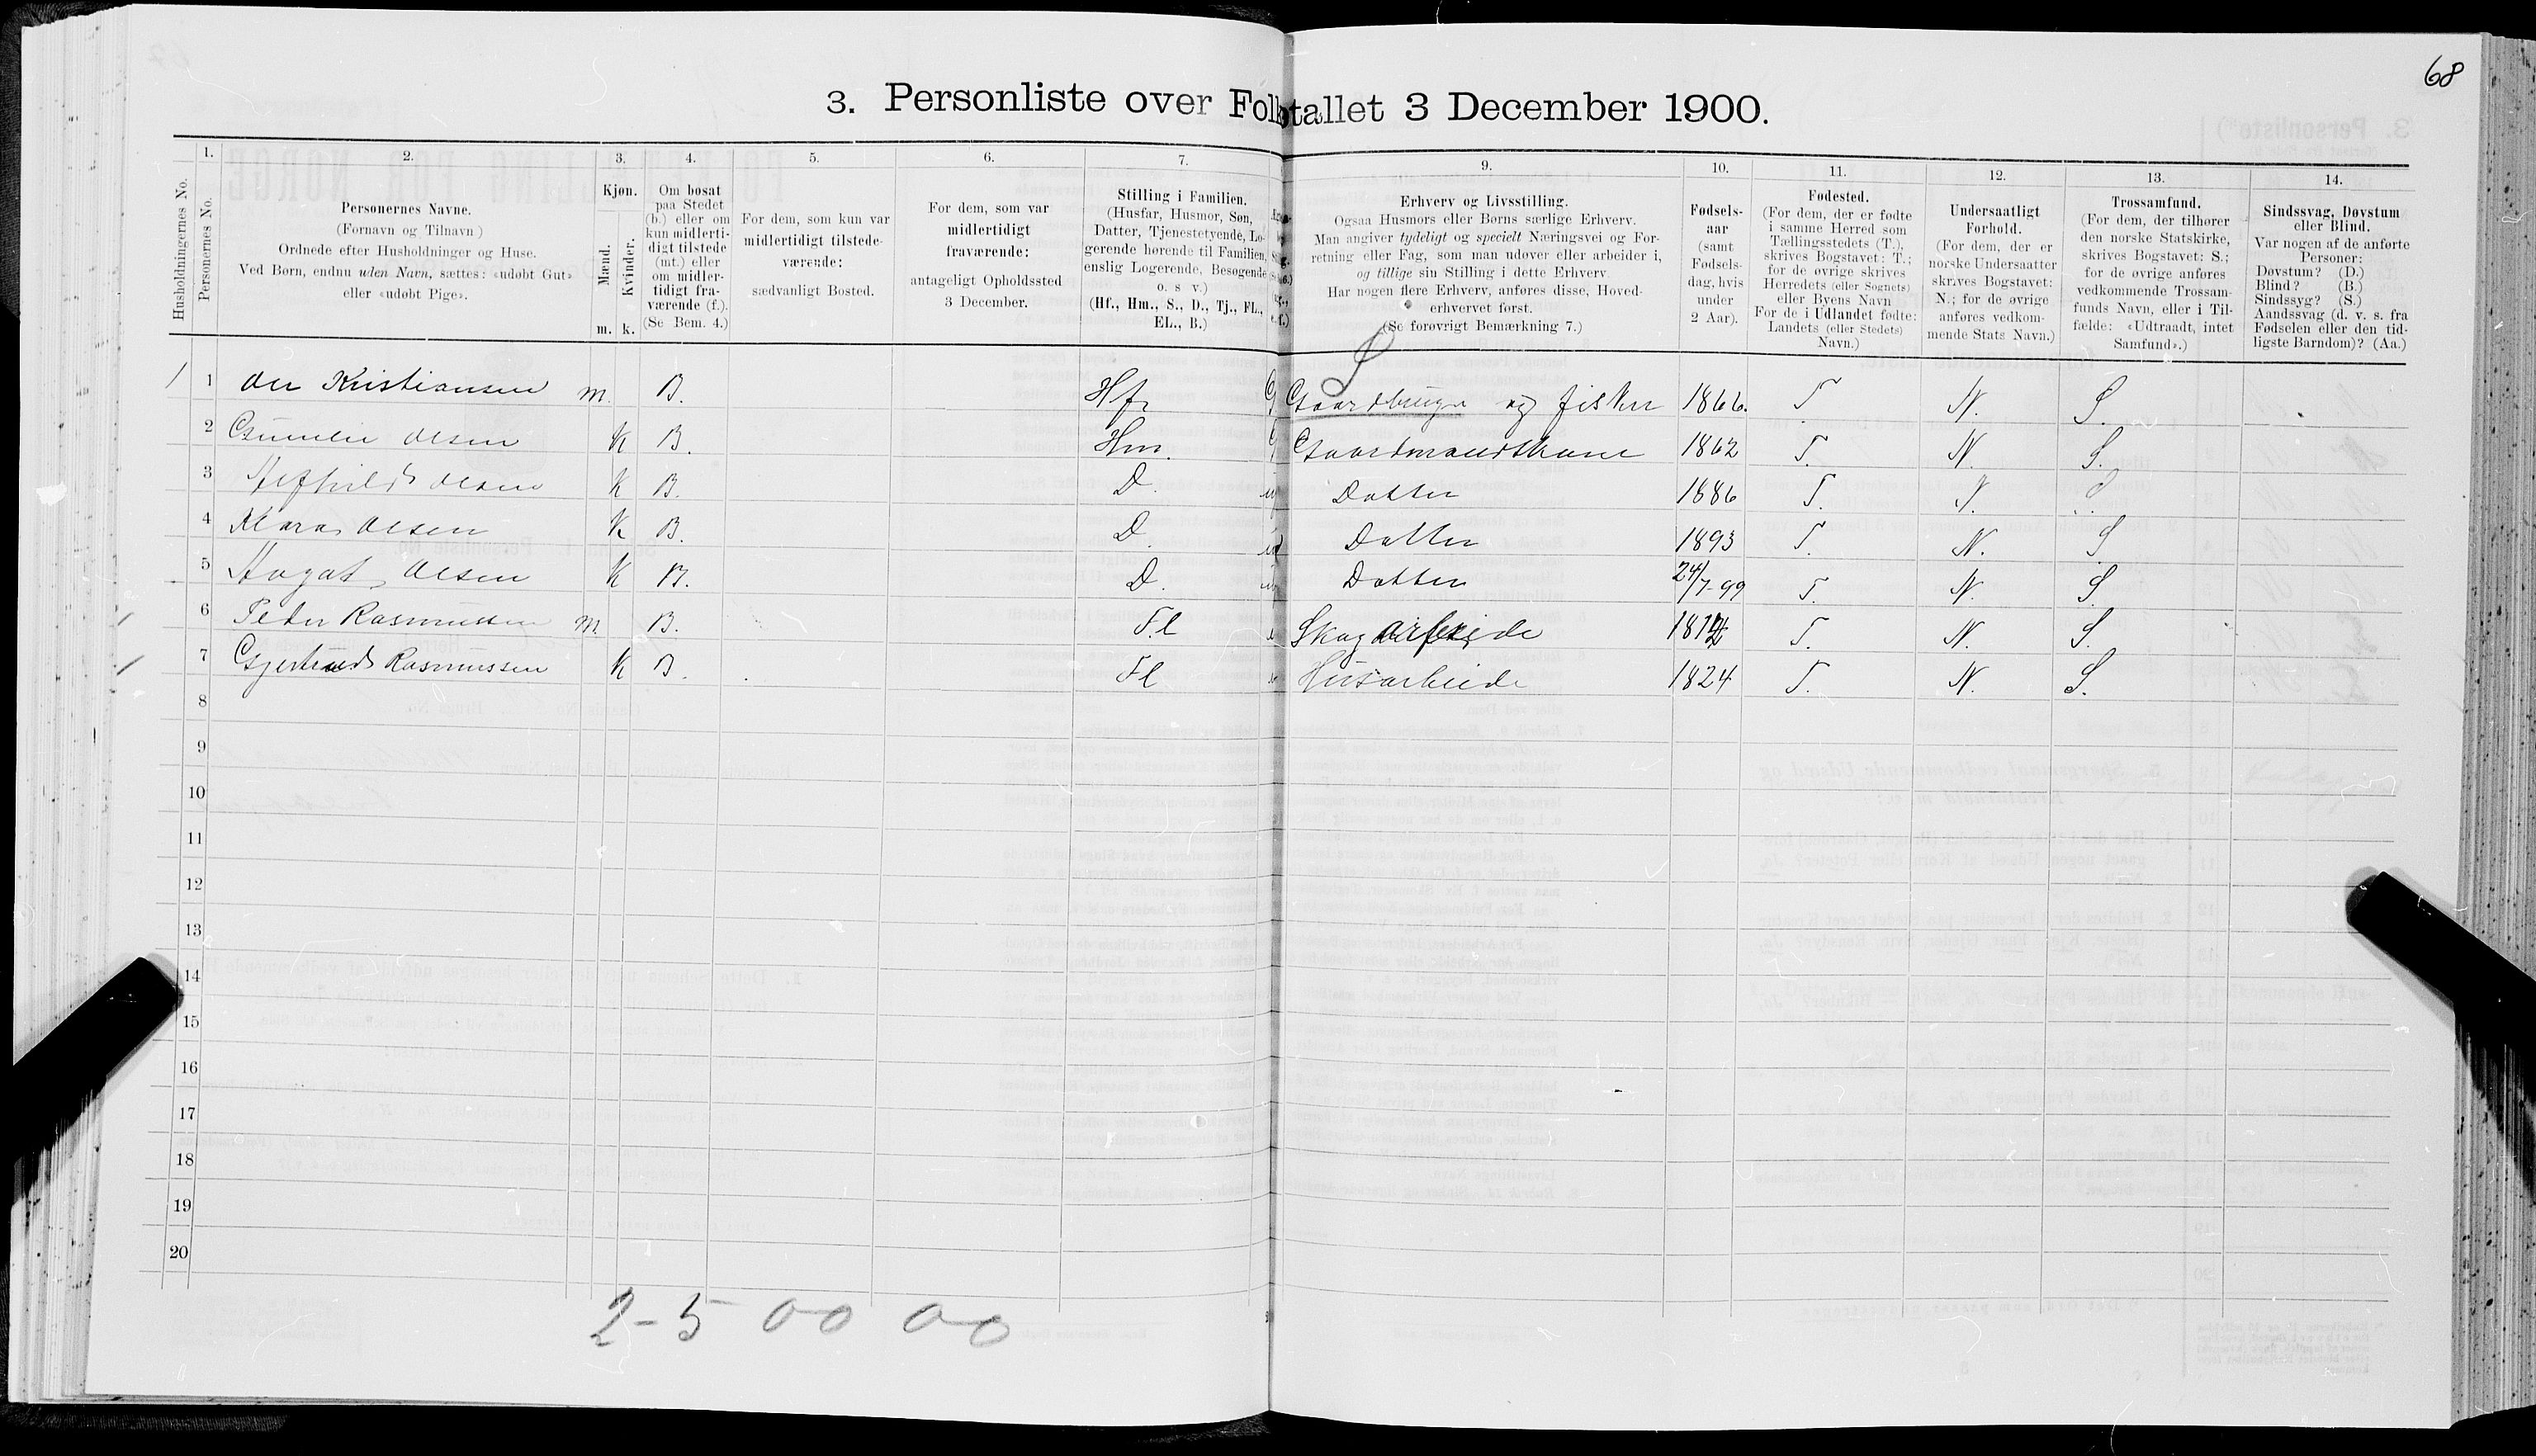 68
3. Personliste over Folketallet 3 December 1900.
1. 2. 3. 4. 5. 6. 7. 9. 10. 11. 12. 13. 14.
Husholdningernes No.
Personernes No.
Personernes Navne.
(Fornavn og Tilnavn)
Ordnede efter Husholdninger og Huse.
Ved Børn, endnu uden Navn, sættes: «udøbt Gut»
eller «udøbt Pige».
Kjøn.
Mænd.
Kvinder.
m. k.
Om bosat
paa Stedet
(b.) eller om
kun midlerti-
digt tilstede
(mt.) eller
om midler-
tidigt fra-
værende (f.).
(Se Bem. 4.)
For dem, som kun var
midlertidigt tilstede-
værende:
sædvanligt Bosted.
For dem, som var
midlertidigt
fraværende:
antageligt Opholdssted
3 December.
Stilling i Familien.
(Husfar, Husmor, Søn,
Datter, Tjenestetyende, Lo-
gerende hørende til Familien,
enslig Logerende, Besøgende
o. s. v.)
(Hf., Hm., S., D., Tj., FL.,
EL., B.)
Erhverv og Livsstilling.
Ogsaa Husmors eller Børns særlige Erhverv.
Man angiver tydeligt og specielt Næringsvei og For-
retning eller Fag, som man udøver eller arbeider i,
og tillige sin Stilling i dette Erhverv.
Har nogen flere Erhverv, anføres disse, Hoved-
erhvervet først.
(Se forøvrigt Bemærkning 7.)
Fødsels-
aar
(samt
Fødsels-
dag, hvis
under
2 Aar).
Fødested.
(For dem, der er fødte
i samme Herred som
Tællingsstedets (T.),
skrives Bogstavet: T.;
for de øvrige skrives
Herredets (eller Sognets)
eller Byens Navn
For de i Udlandet fødte:
Landets (eller Stedets)
Navn.)
Undersaatligt
Forhold.
(For dem, der er
norske Undersaatter
skrives Bogstavet:
N.; for de øvrige
anføres vedkom-
mende Stats Navn.)
Trossamfund.
(For dem, der tilhører
den norske Statskirke,
skrives Bogstavet: S.;
for de øvrige anføres
vedkommende Trossam-
funds Navn, eller i Til-
fælde: «Udtraadt, intet
Samfund».)
Sindssvag, Døvstum
eller Blind.
Var nogen af de anførte
Personer:
Døvstum? (D.)
Blind? (B.)
Sindssyg? (S.)
Aandssvag (d. v. s. fra
Fødselen eller den tid-
ligste Barndom)? (Aa.)
1 1 Kristiansen m. B. Hf. Gaardbruger og fisker 1866. T. N. S.
2 Olsen K B. Hm. Gaardmandskone 1862 T. N. S.
3 Olsen K B. D. Datter 1886 T. N. S.
4 Klara Olsen K B. D. Datter 1893 T. N. S
5 Olsen K B. D. Datter 24/7-99 T. N. S.
6 Peder Rasmussen m. B. F.l Skogarbeide T. N. S.
7 Gjertruds Rasmussen K B. Fl Husarbeide 1824 T. N. S.
8
9
10
11
12
13
14
15
16
17
18
19
20
2-5 00 00